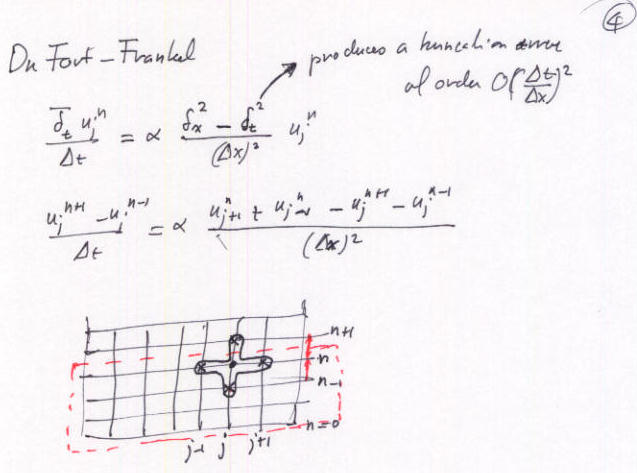 ④
Du Fort-Frankel
produces a truncation error
of order O(Δt/Δx)²
δ̅ₜ uⱼⁿ / Δt = α (δₓ² - δₜ²) / (Δx)² uⱼⁿ
(uⱼⁿ⁺¹ - uⱼⁿ⁻¹) / Δt = α (uⱼ₊₁ⁿ + uⱼ₋₁ⁿ - uⱼⁿ⁺¹ - uⱼⁿ⁻¹) / (Δx)²
n+1
n
n-1
n=0
j-1 j j+1